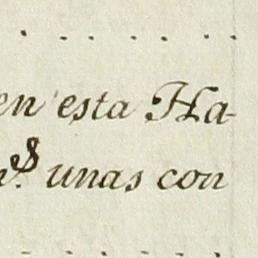 en esta Ha-
unas con